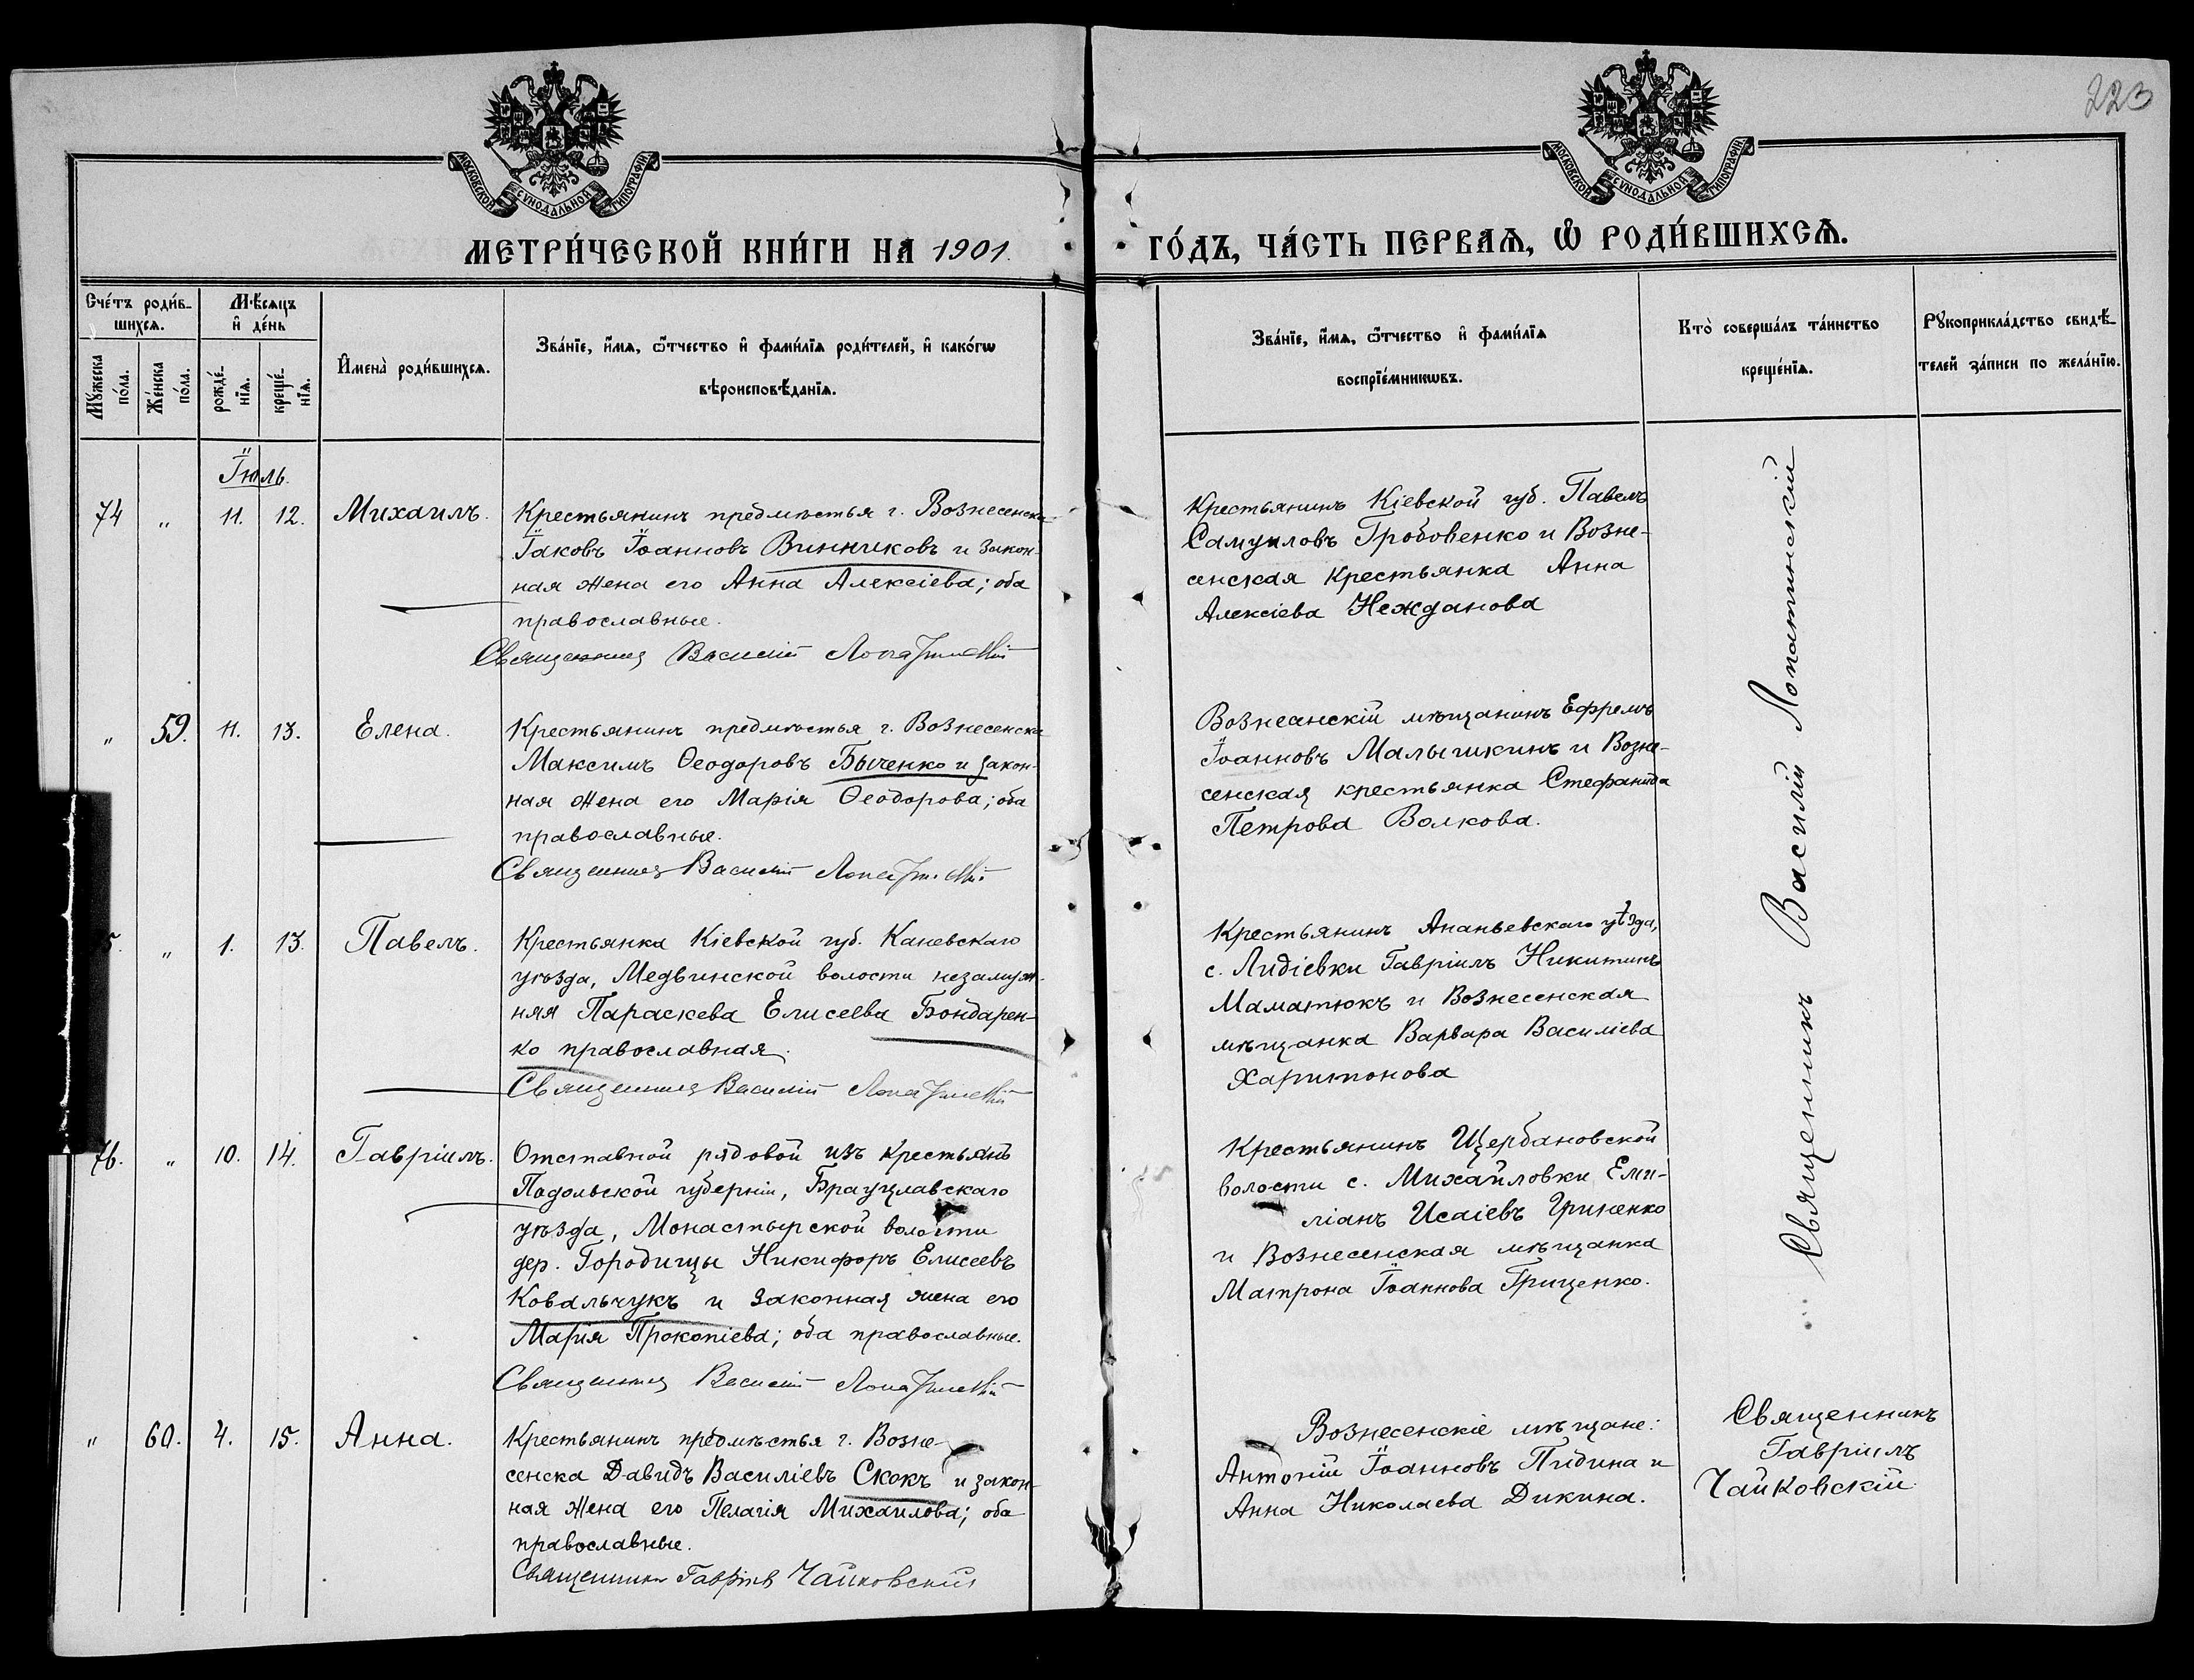 223
МОСКОВСКОЙ СѴНОДАЛЬНОЙ ТИПОГРАФІИ
МОСКОВСКОЙ СѴНОДАЛЬНОЙ ТИПОГРАФІИ
МЕТРИ́ЧЕСКОЙ КНИ́ГИ НА 1901.
ГО́ДЪ, ЧА́СТЬ ПЕРВАѦ, Ѽ РОДИ́ВШИХСѦ.
Сче́тъ роди́в-
шихсѧ.
Мꙋ́жеска
по́ла.
Же́нска
по́ла.
Мѣ́сѧцъ
и҆ де́нь
рожде́-
нїѧ.
креще́-
нїѧ.
И҆мена̀ роди́вшихсѧ.
Зва́нїе, и҆́мѧ, ѻ҆́тчество и҆ фами́лїѧ роди́телей, и҆ како́гѡ
вѣроисповѣ́данїѧ.
Зва́нїе, и҆́мѧ, ѻ҆́тчество и҆ фами́лїѧ
воспрїе́мникѡвъ.
Кто̀ соверша́лъ та́инство
креще́нїѧ.
Рꙋкоприкла́дство свидѣ́-
телей за́писи по жела́нїю.
Іюль.
74 " 11. 12. Михаилъ.
Крестьянинъ предмѣстья г. Вознесенска
Іаковъ Іоанновъ Винниковъ и закон-
ная жена его Анна Алексіева; оба
православные.
Священникъ Василій Лопатинскій
Крестьянинъ Кіевской губ. Павелъ
Самуиловъ Гробовенко и Возне-
сенская крестьянка Анна
Алексіева Нежданова
" 59. 11. 13. Елена.
Крестьянинъ предмѣстья г. Вознесенска
Максимъ Ѳеодоровъ Быченко и закон-
ная жена его Марія Ѳеодорова; оба
православные.
Священникъ Василій Лопатинскій
Вознесенскій мѣщанинъ Ефремъ
Іоанновъ Малышкинъ и Возне-
сенская крестьянка Стефанида
Петрова Волкова.
5. " 1. 13. Павелъ.
Крестьянка Кіевской губ. Каневскаго
уѣзда, Медвинской волости незамуж-
няя Параскева Елисеева Бондарен-
ко православная.
Священникъ Василій Лопатинскій
Крестьянинъ Ананьевскаго уѣзда,
с. Лидіевки Гавріилъ Никитинъ
Маматюкъ и Вознесенская
мѣщанка Варвара Василіева
Харитонова
76. " 10. 14. Гавріилъ.
Отставной рядовой изъ крестьянъ
Подольской губерніи, Брацлавскаго
уѣзда, Монастырской волости
дер. Городищы Никифоръ Елисеевъ
Ковальчукъ и законная жена его
Марія Прокопіева; оба православные.
Священникъ Василій Лопатинскій
Крестьянинъ Щербановской
волости с. Михайловки Еми-
ліанъ Исаіевъ Гриненко
и Вознесенская мѣщанка
Матрона Іоаннова Гриценко.
Священникъ Василій Лопатинскій
" 60. 4. 15. Анна.
Крестьянинъ предмѣстья г. Возне-
сенска Давидъ Василіевъ Скокъ и закон-
ная жена его Пелагія Михаилова; оба
православные.
Священникъ Гавріилъ Чайковскій
Вознесенскіе мѣщане:
Антоній Іоанновъ Пидина и
Анна Николаева Дикина.
Священникъ
Гавріилъ
Чайковскій